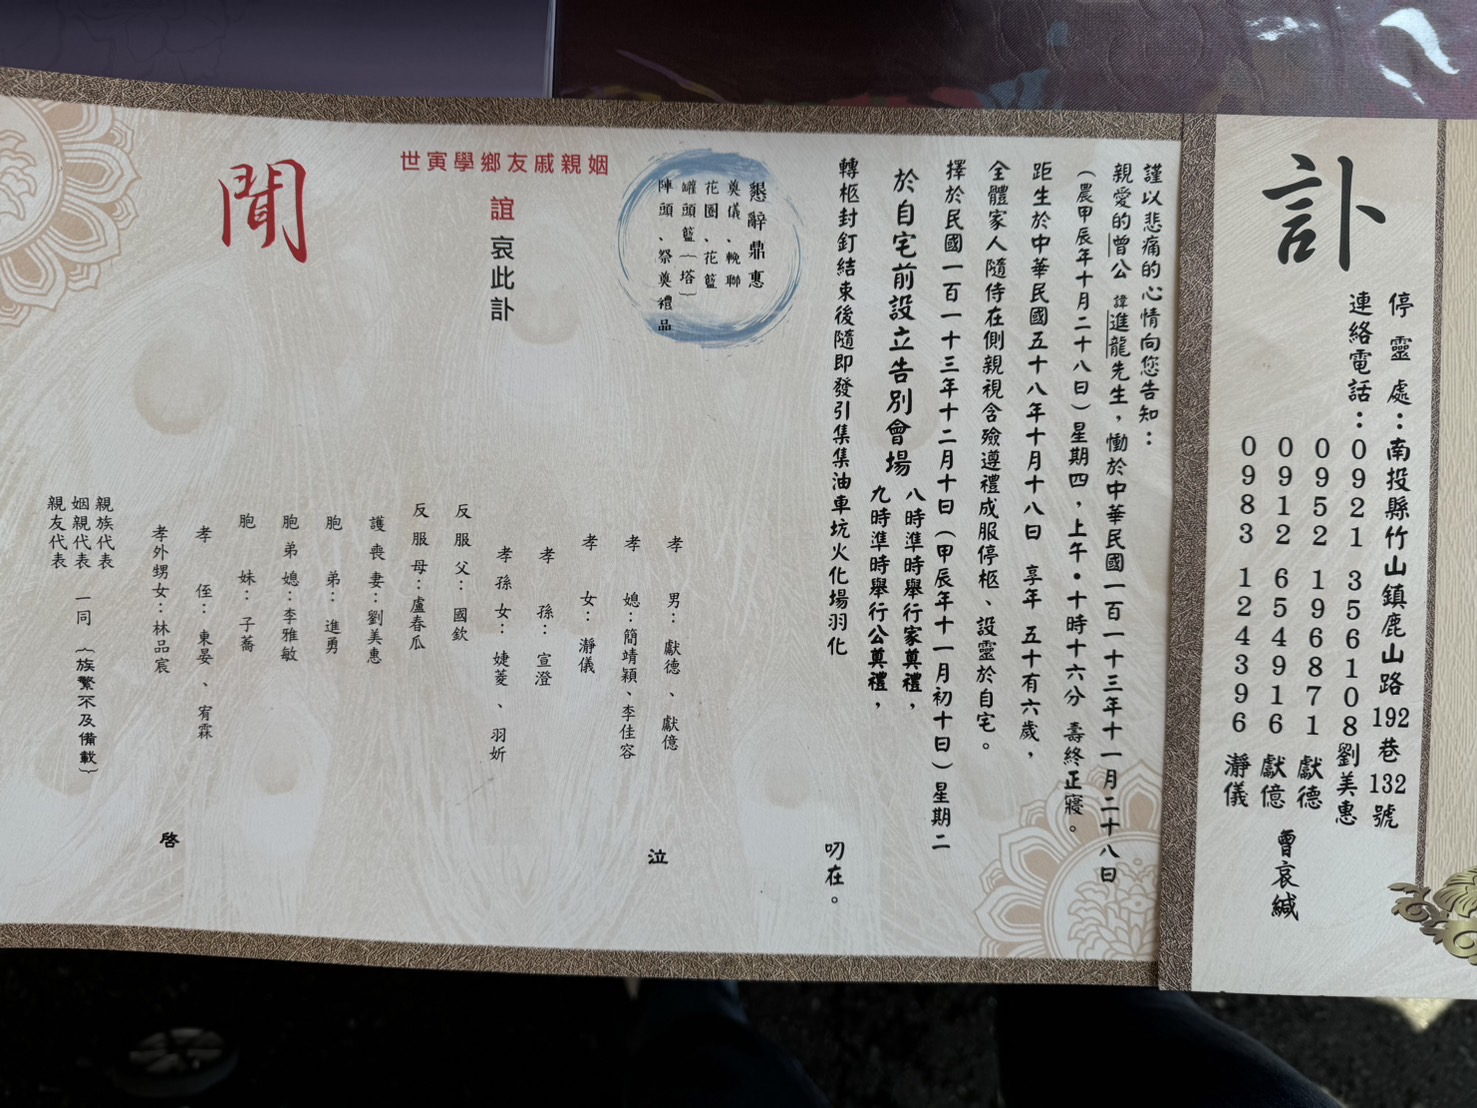 訃
停靈處：南投縣竹山鎮鹿山路192巷132號
連絡電話：0921356108劉美惠
0952196871獻德
0912654916獻億
0983124396瀞儀
曾哀緘
謹以悲痛的心情向您告知：
親愛的曾公諱進龍先生，慟於中華民國一百一十三年十一月二十八日
（農甲辰年十月二十八日）星期四，上午•十時十六分 壽終正寢。
距生於中華民國五十八年十月十八日 享年 五十有六歲，
全體家人隨侍在側親視含殮遵禮成服停柩、設靈於自宅。
擇於民國一百一十三年十二月十日（甲辰年十一月初十日）星期二
於自宅前設立告別會場
八時準時舉行家奠禮，
九時準時舉行公奠禮，
轉柩封釘結束後隨即發引集集油車坑火化場羽化
叨在。
懇辭鼎惠
奠儀、輓聯
花圈、花籃
罐頭籃（塔）
陣頭、祭奠禮品
世寅學鄉友戚親姻
誼哀此訃
聞
孝男：獻德、獻億
孝媳：簡靖穎、李佳容
孝女：瀞儀
孝孫：宣澄
孝孫女：婕菱、羽妡
反服父：國欽
反服母：盧春瓜
護喪妻：劉美惠
胞弟：進勇
胞弟媳：李雅敏
胞妹：子蕎
孝侄：東晏、宥霖
孝外甥女：林品宸
泣
啓
親族代表
姻親代表 一同（族繁不及備載）
親友代表